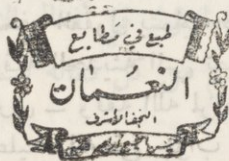 طبع في مطابع
النعمان
النجف الأشرف